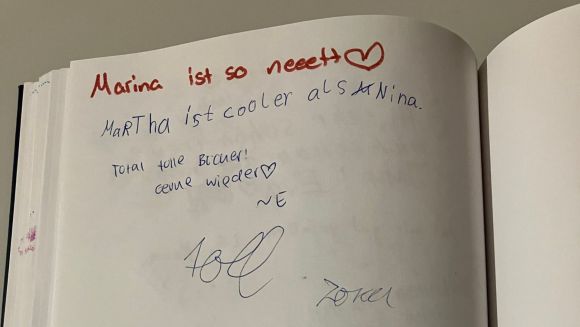 Marina ist so neeett♡
MaRTha ist cooler als Nina.
Total tolle Bücher!
Gerne wieder♡
~E
Toll